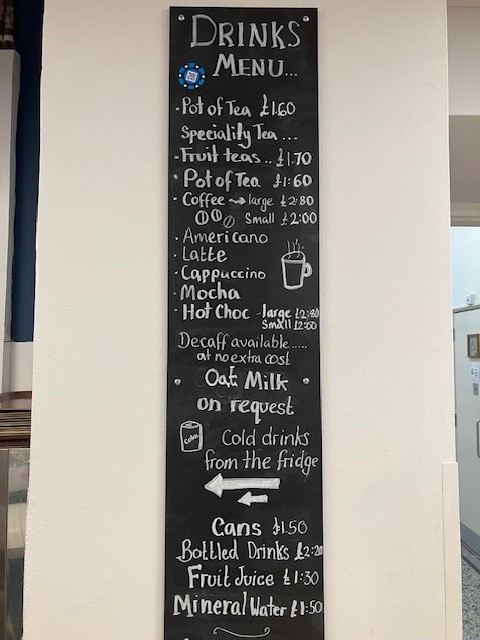 DRINKS
MENU...
· Pot of Tea £1.60
Speciality Tea ...
- Fruit teas... £1.70
· Pot of Tea £1:60
· Coffee large £2:80
Small £2:00
· Americano
· Latte
· Cappuccino
· Mocha
· Hot Choc - large £2:80
Small £2:00
Decaff available.....
at no extra cost
Oat Milk
on request
Coke
Cold drinks
from the fridge
Cans £1.50
Bottled Drinks £2:20
Fruit Juice £1:30
Mineral Water £1:50